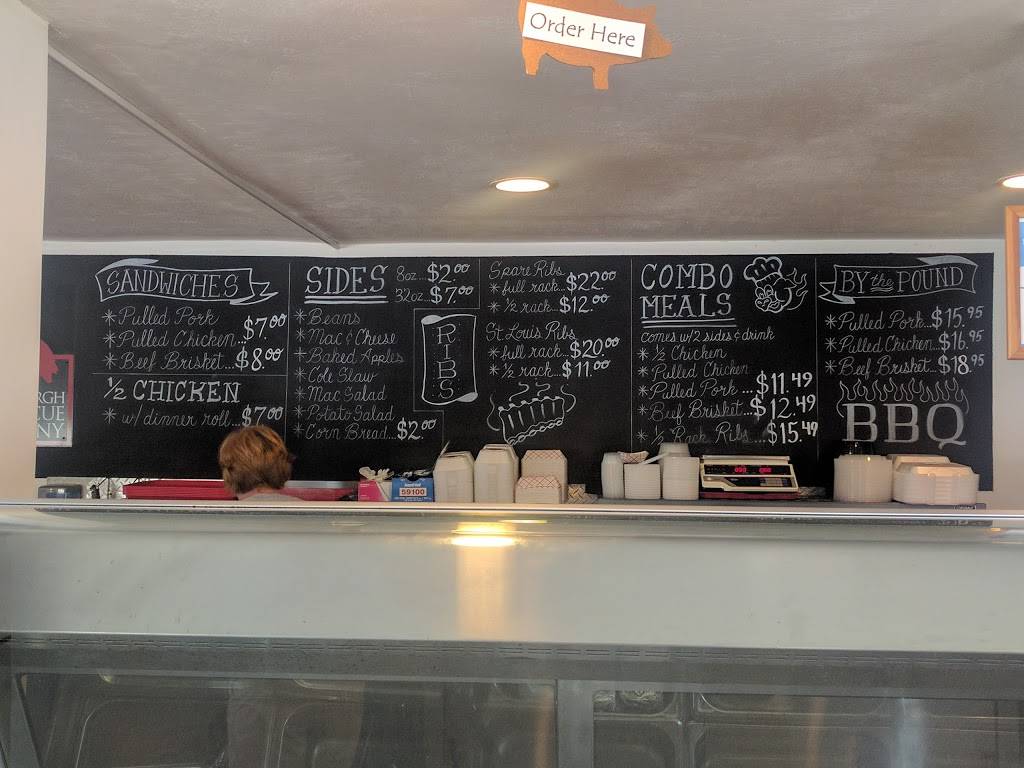 Order Here
SANDWICHES
*Pulled Pork
*Pulled Chicken...$7.00
*Beef Brisket...$8.00
1/2 CHICKEN
* w/ dinner roll...$7.00
SIDES
8oz...$2.00
32oz...$7.00
*Beans
*Mac & Cheese
*Baked Apples
*Cole Slaw
*Mac Salad
*Potato Salad
*Corn Bread...$2.00
RIBS
Spare Ribs
* full rack...$22.00
* 1/2 rack...$12.00
St. Louis Ribs
* full rack...$20.00
* 1/2 rack...$11.00
COMBO
MEALS
comes w/ 2 sides & drink
* 1/2 Chicken
* Pulled Chicken
* Pulled Pork...$11.49
* Beef Brisket...$12.49
* 1/2 Rack Ribs...$15.49
BY the POUND
*Pulled Pork...$15.95
*Pulled Chicken...$16.95
*Beef Brisket...$18.95
BBQ
59100